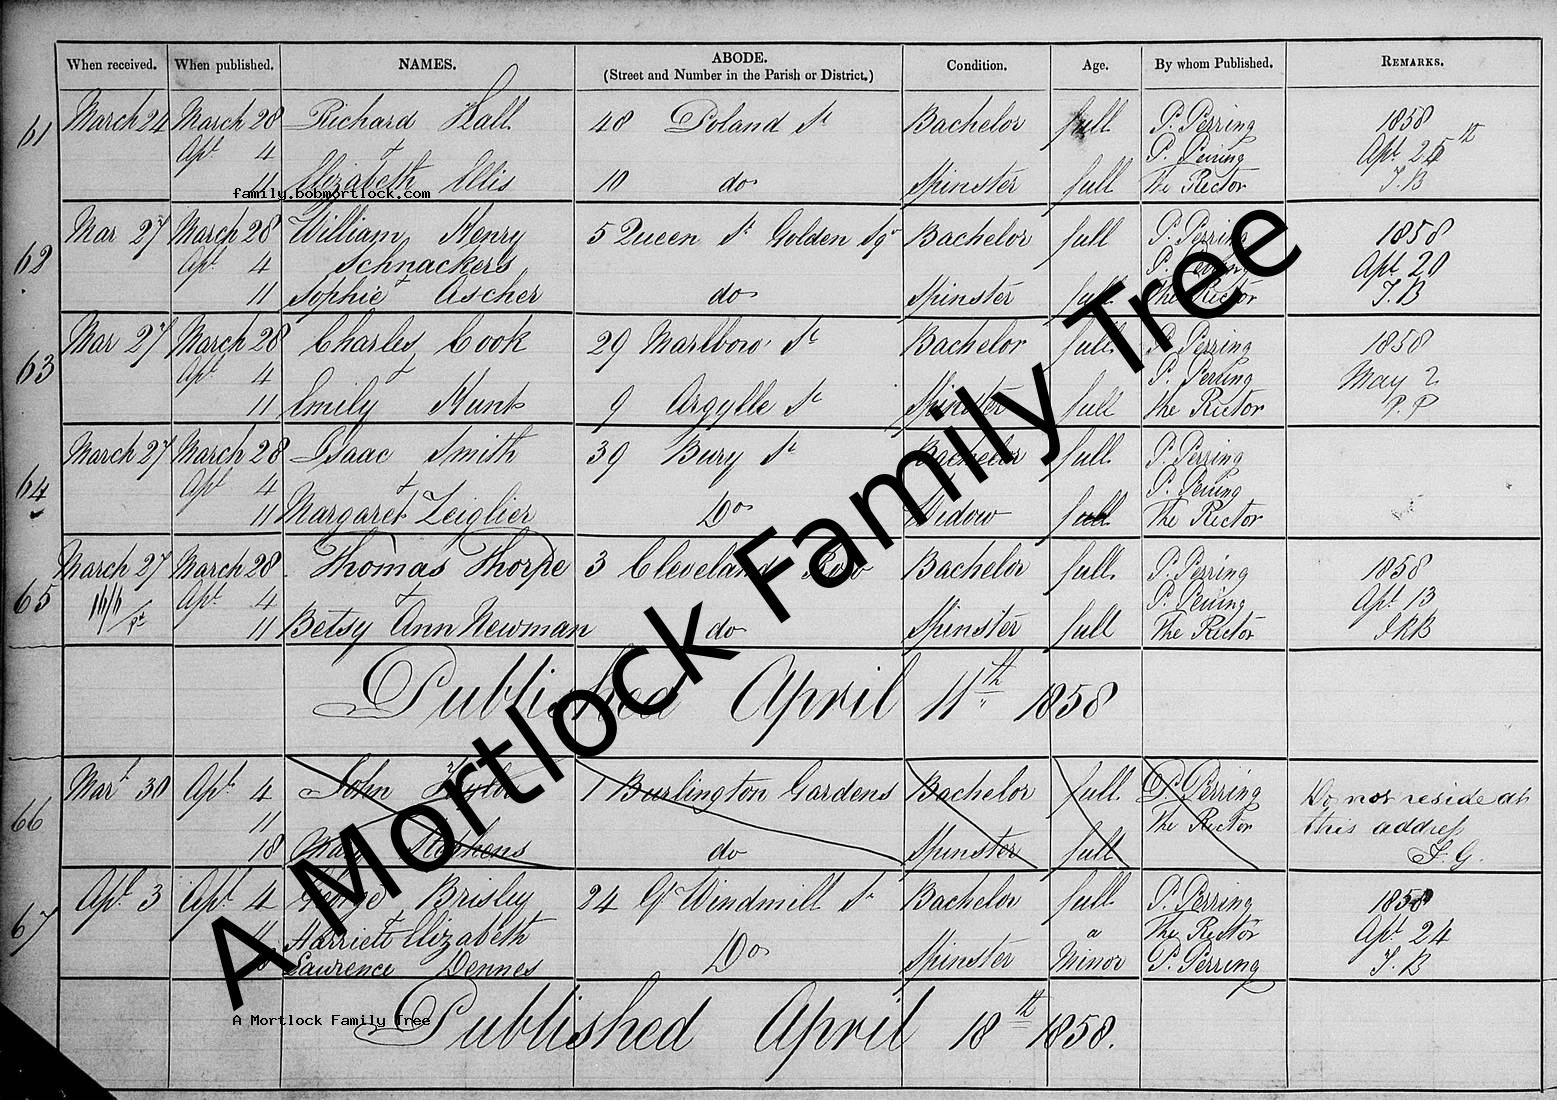 When received. When published. NAMES. ABODE. (Street and Number in the Parish or District.) Condition. Age. By whom Published. REMARKS.
61 March 24 March 28 Richard Hall 48 Poland St Bachelor full P. Perring 1858
Apl 4 & P. Perring Apl 25th
11 Elizabeth Ellis 10 do Spinster full The Rector J.B
family.bobmortlock.com
62 Mar 27 March 28 William Henry 5 Queen St Golden Sqr Bachelor full P. Perring 1858
Apl 4 Schnackers P. Perring Apl 20
11 & Sophie Ascher do Spinster full The Rector J.B
63 Mar 27 March 28 Charles Cook 29 Marlboro' St Bachelor full P. Perring 1858
Apl 4 & P. Perring May 2
11 Emily Hunt 9 Argylle St Spinster full The Rector P.P
64 March 27 March 28 Isaac Smith 39 Bury St Bachelor full P. Perring
Apl 4 & P. Perring
11 Margaret Zeiglier Do Widow full The Rector
65 March 27 March 28 Thomas Thorpe 3 Cleveland Row Bachelor full P. Perring 1858
Apl 4 & P. Perring Apl 13
11 Betsy Ann Newman do Spinster full The Rector
Published April 11th 1858
66 Marh 30 Apl 4 John 1 Burlington Gardens Bachelor full P. Perring Do not reside at
11 The Rector this address
18 Mary Stephens do Spinster full J.G.
67 Apl 3 Apl 4 George Brisley 24 Gt Windmill St Bachelor full P. Perring 1858
11 & Harriett Elizabeth a The Rector Apl 24
Lawrence Dennes Do Spinster Minor P. Perring J.B
Published April 18th 1858.
A Mortlock Family Tree
A Mortlock Family Tree